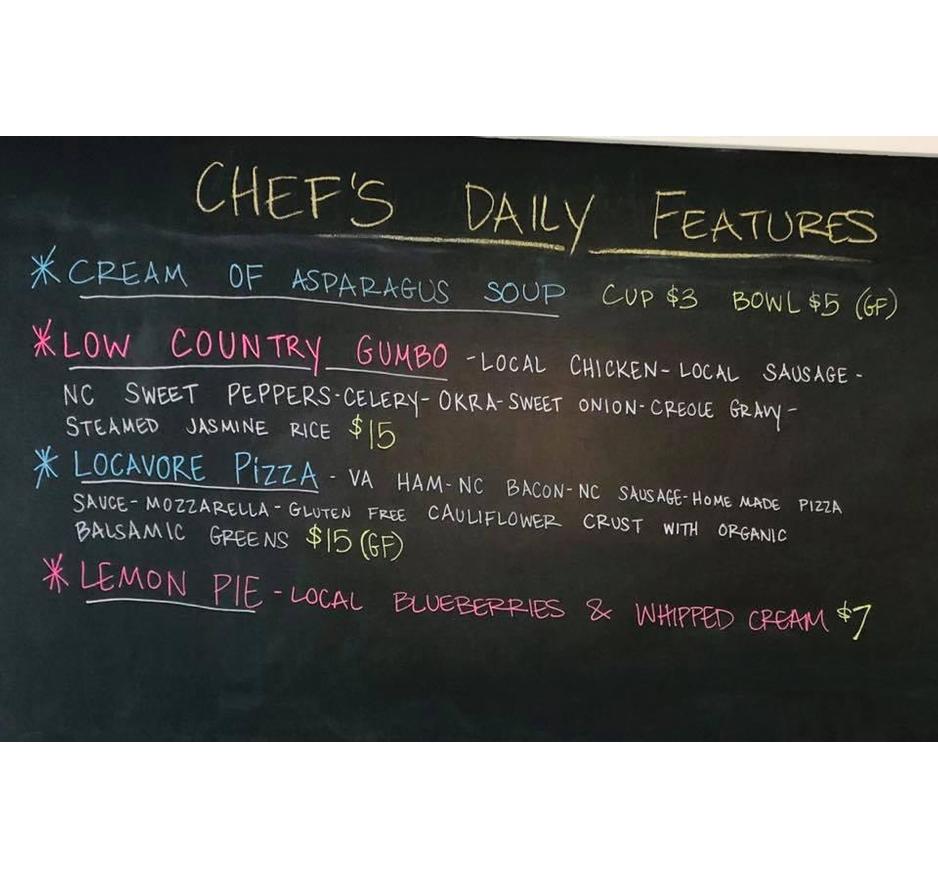 CHEF'S DAILY FEATURES
* CREAM OF ASPARAGUS SOUP CUP $3 BOWL $5 (GF)
* LOW COUNTRY GUMBO - LOCAL CHICKEN - LOCAL SAUSAGE -
NC SWEET PEPPERS - CELERY - OKRA - SWEET ONION - CREOLE GRAVY -
STEAMED JASMINE RICE $15
* LOCAVORE PiZZA - VA HAM - NC BACON - NC SAUSAGE - HOME MADE PIZZA
SAUCE - MOZZARELLA - GLUTEN FREE CAULIFLOWER CRUST WITH ORGANIC
BALSAMIC GREENS $15 (GF)
* LEMON PIE - LOCAL BLUEBERRIES & WHIPPED CREAM $7